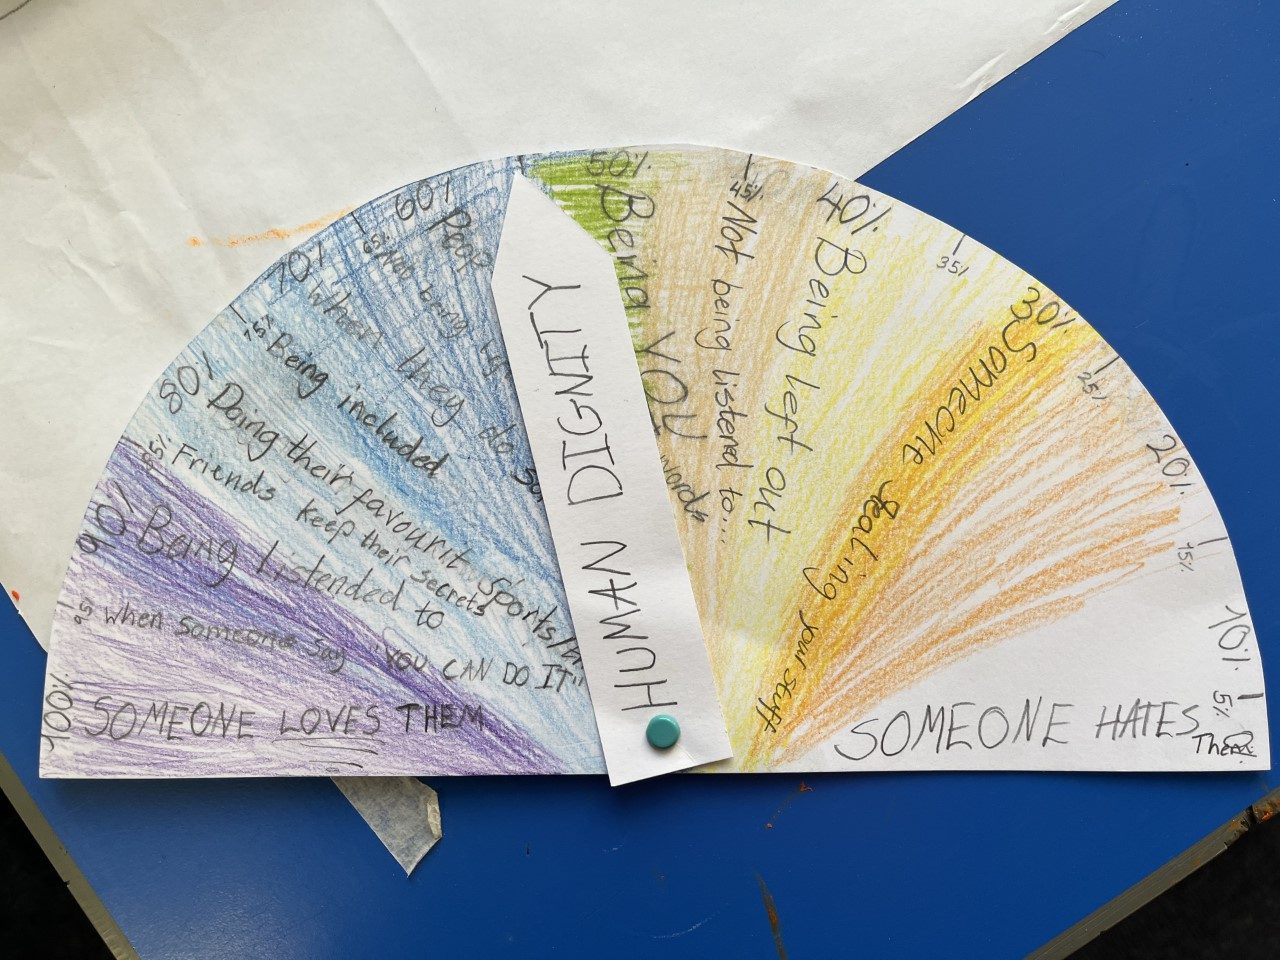 100%
SOMEONE LOVES THEM
95%
when someone say "YOU CAN DO IT"
90%
Being listended to
85%
Friends keep their secrets
80%
Doing their favourit sports/h
75%
Being included
70%
When they do so
65%
being
60%
Peop
HUMAN DIGNITY
50%
Being YOU
words"
45%
Not being listened to...
40%
Being left out
35%
30%
Someone stealing your stuff
25%
20%
15%
10%
5%
SOMEONE HATES Them